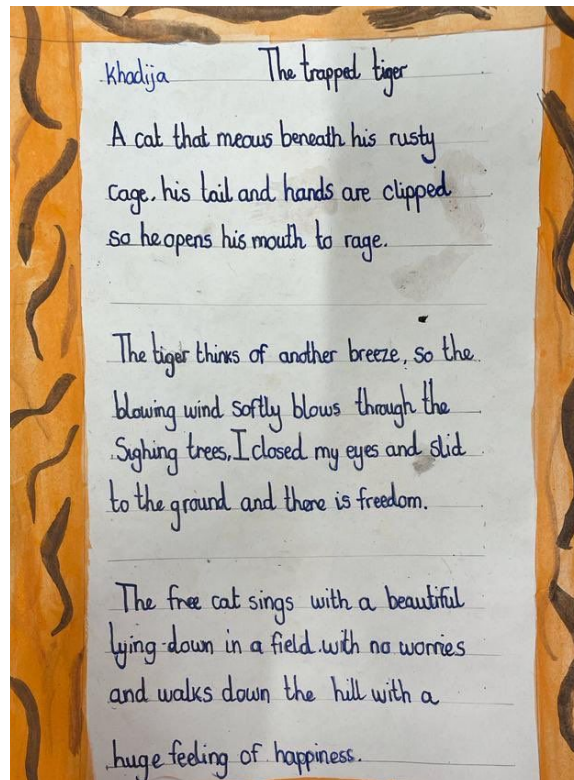 Khadija The trapped tiger
A cat that meows beneath his rusty
cage. his tail and hands are clipped
so he opens his mouth to rage.
The tiger thinks of another breeze, so the
blowing wind softly blows through the
Sighing trees, I closed my eyes and slid
to the ground and there is freedom.
The free cat sings with a beautiful
lying down in a field.with no worries
and walks down the hill with a
huge feeling of happiness.